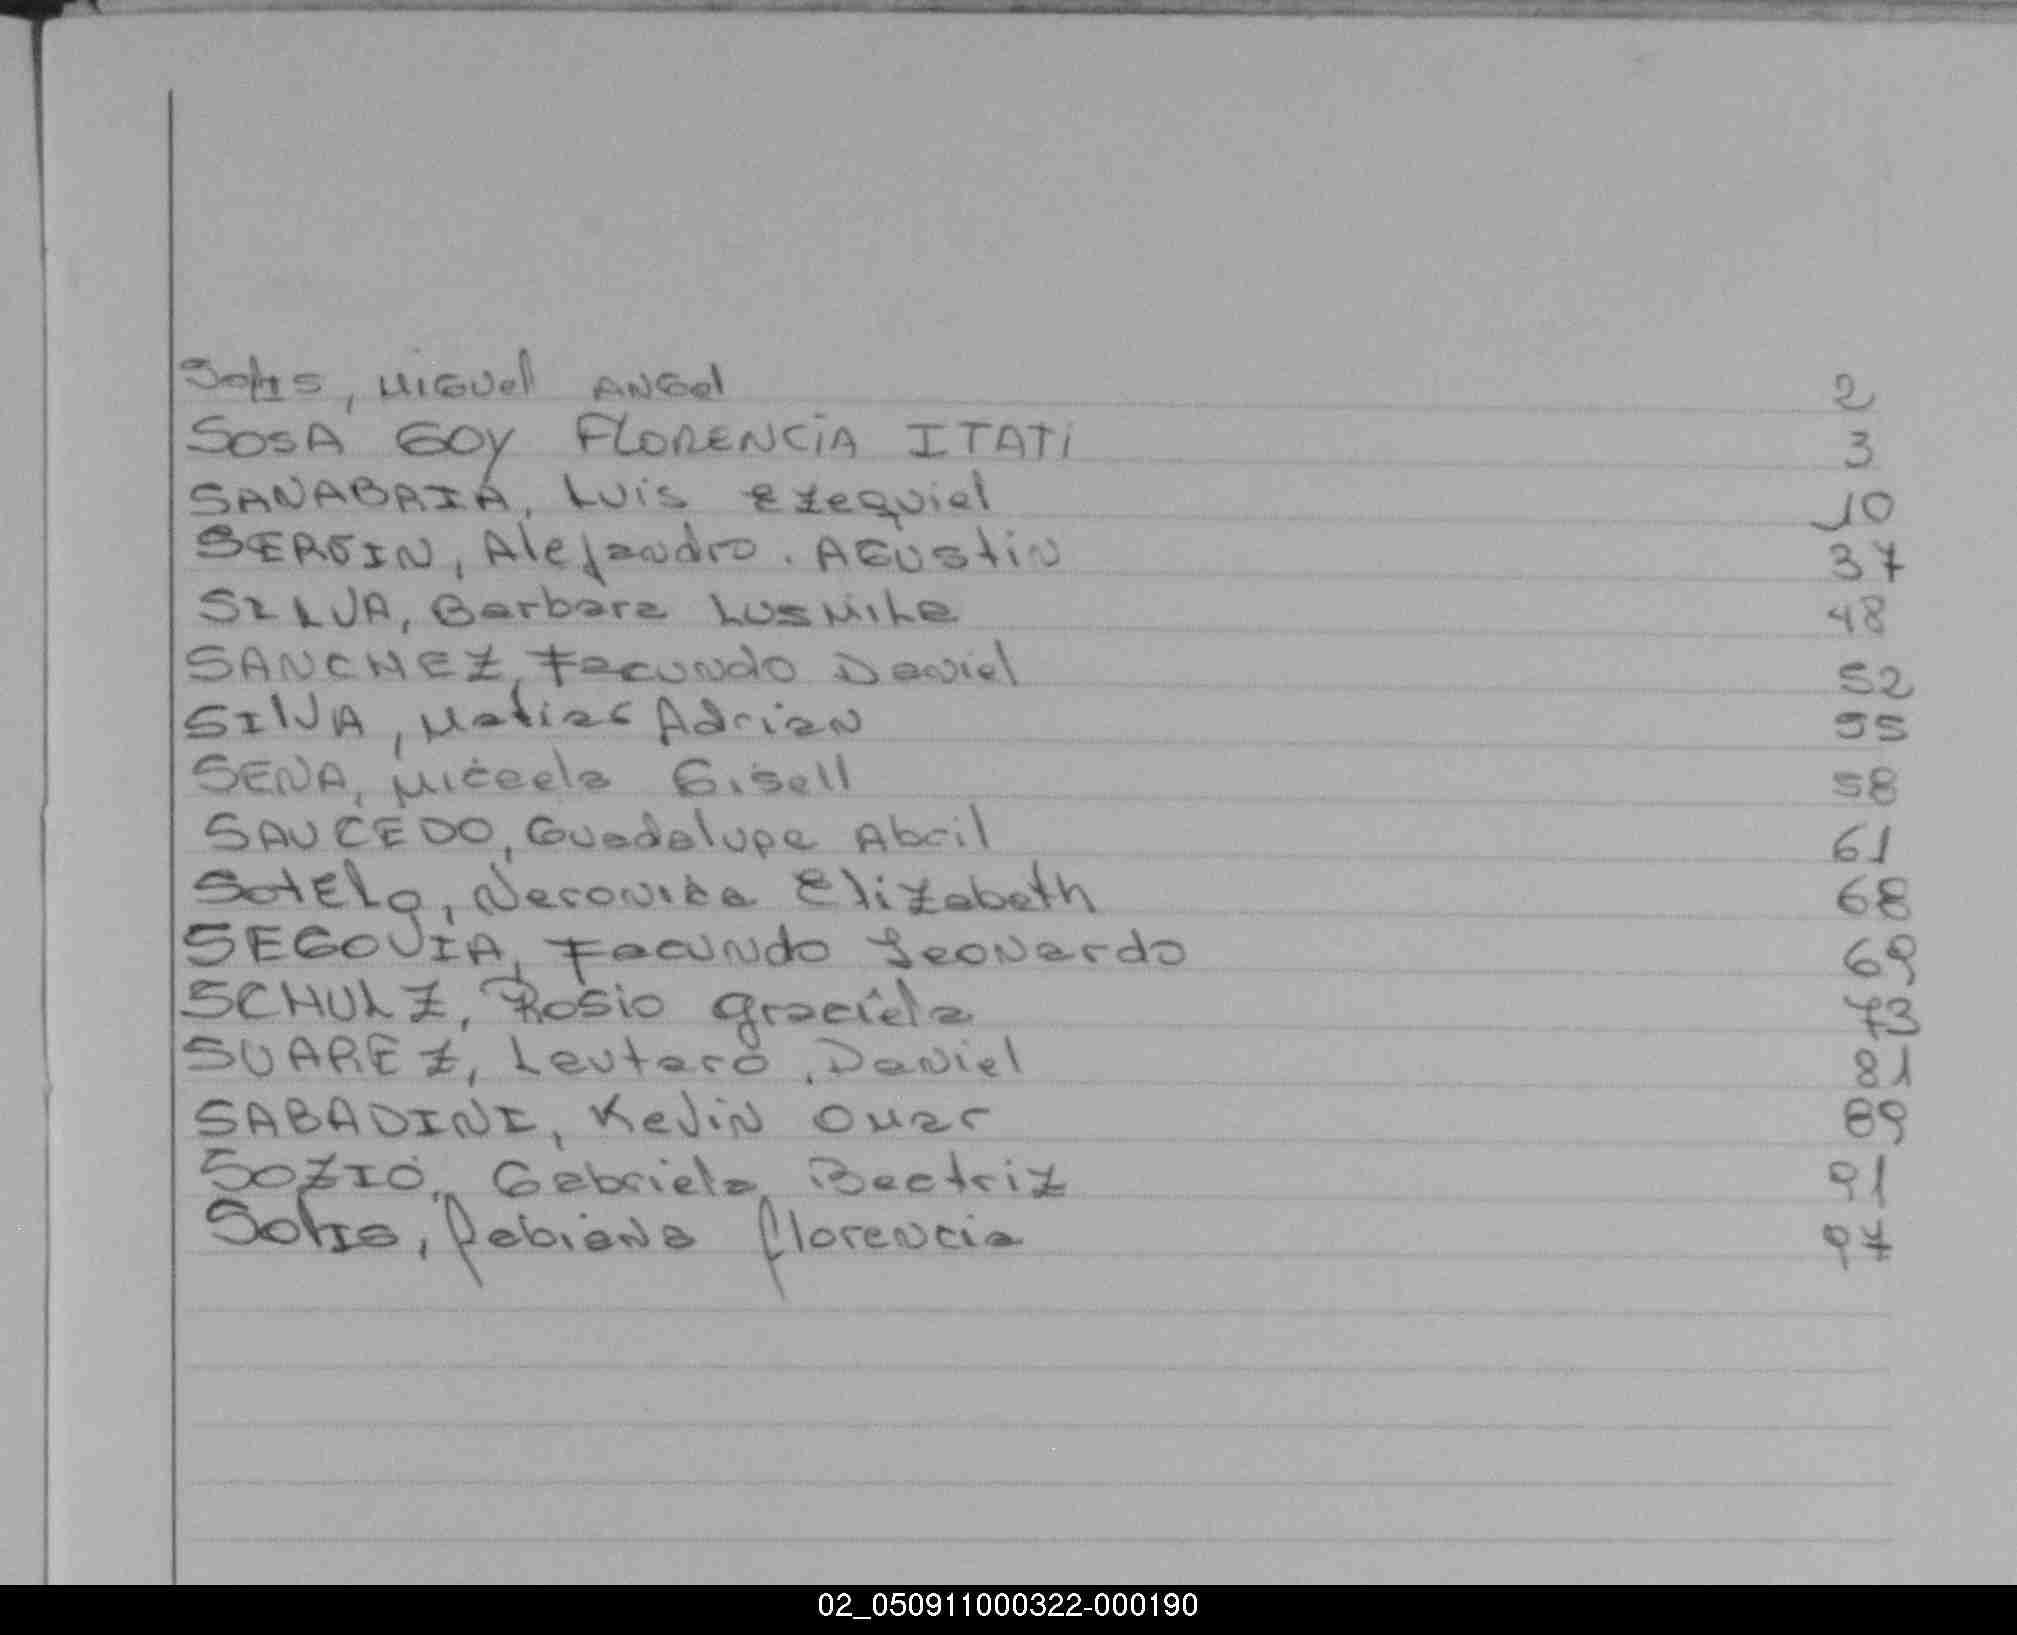 Solis, MIGUel ANGel 2
SOSA GOY FLORENCIA ITATI 3
SANABRIA, Luis Ezequiel 10
SERGIN, Alejandro. AGustin 37
SILVA, Barbara LUSMILa 48
SANCHEZ, Facundo Daniel 52
SILVA, Matias Adrian 55
SENA, Micaela Gisell 58
SAUCEDO, Guadalupe Abril 61
SotELo, Veronika Elizabeth 68
SEGOVIA, Facundo Leonardo 69
SCHULZ, Rosio graciela 73
SUAREZ, Lautaro, Daniel 81
SABADINI, Kevin Omar 89
SOZIO, Gabriela Beatriz 91
SolIs, fabiana florencia 97
02_050911000322-000190